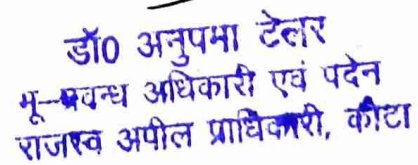 डॉ0 अनुपमा टेलर
भू-प्रवन्ध अधिकारी एवं पदेन
राजस्व अपील प्राधिकारी, कोटा